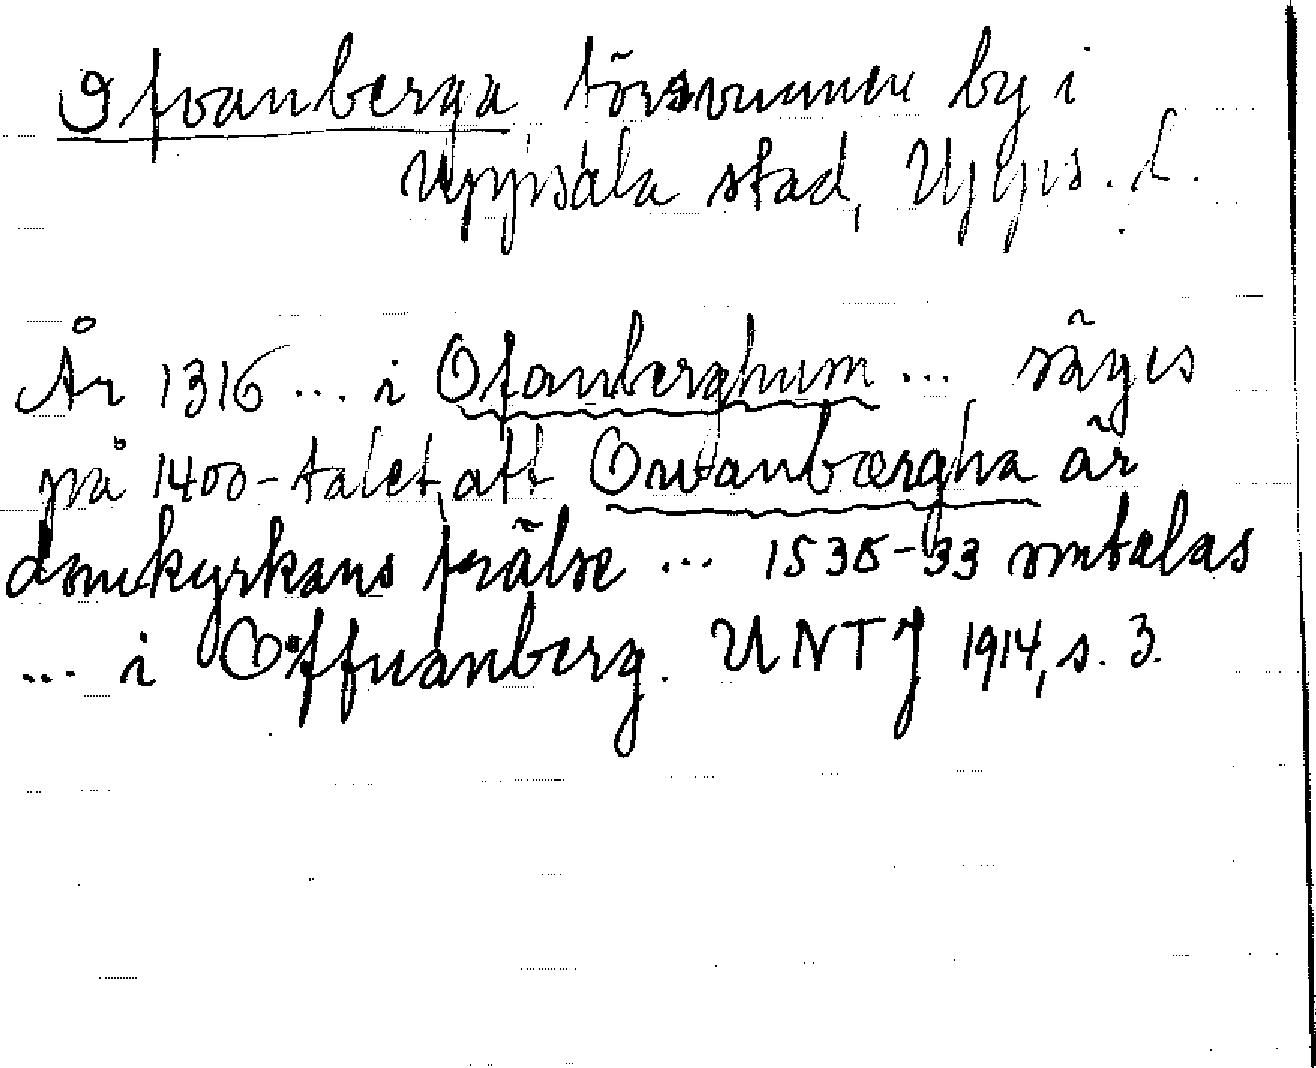 Ofvanberga, försvunnen by i
Uppsala stad, Upps. l.
År 1316 ... i Ofanberghum ... säges
på 1400-talet att Owanbærgha är
domkyrkans frälse ... 1538-33 omtalas
... i Offuanberg. UNTJ 1914, s. 3.